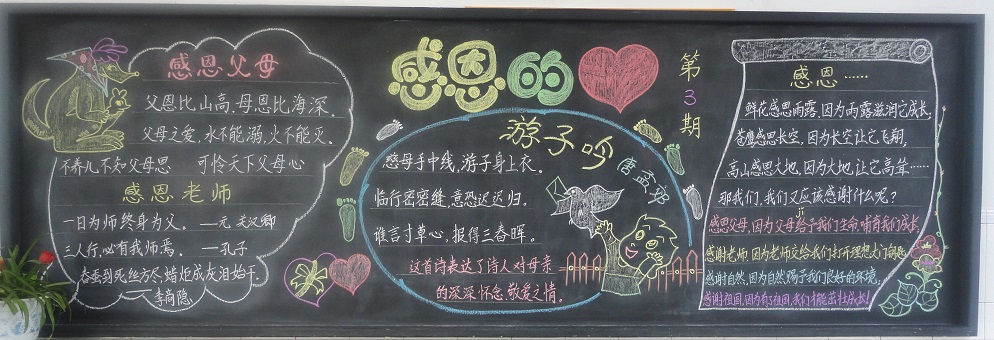 感恩父母
父恩比山高，母恩比海深。
父母之爱，水不能溺，火不能灭。
不养儿不知父母恩　可怜天下父母心
感恩老师
一日为师终身为父。—元 关汉卿
三人行，必有我师焉。—孔子
春蚕到死丝方尽，蜡炬成灰泪始干。
李商隐
感恩的
第3期
游子吟
唐 孟郊
慈母手中线，游子身上衣。
临行密密缝，意恐迟迟归。
谁言寸草心，报得三春晖。
这首诗表达了诗人对母亲
的深深怀念，敬爱之情。
感恩……
鲜花感恩雨露，因为雨露滋润它成长，
苍鹰感恩长空，因为长空让它飞翔，
高山感恩大地，因为大地让它高耸……
那我们，我们又应该感谢什么呢？
感恩父母，因为父母给予我们生命，哺育我们成长，
感谢老师，因为老师交给我们打开理想大门钥匙
感谢自然，因为自然赐予我们良好的环境，
感谢祖国，因为有了祖国，我们才能茁壮成长！